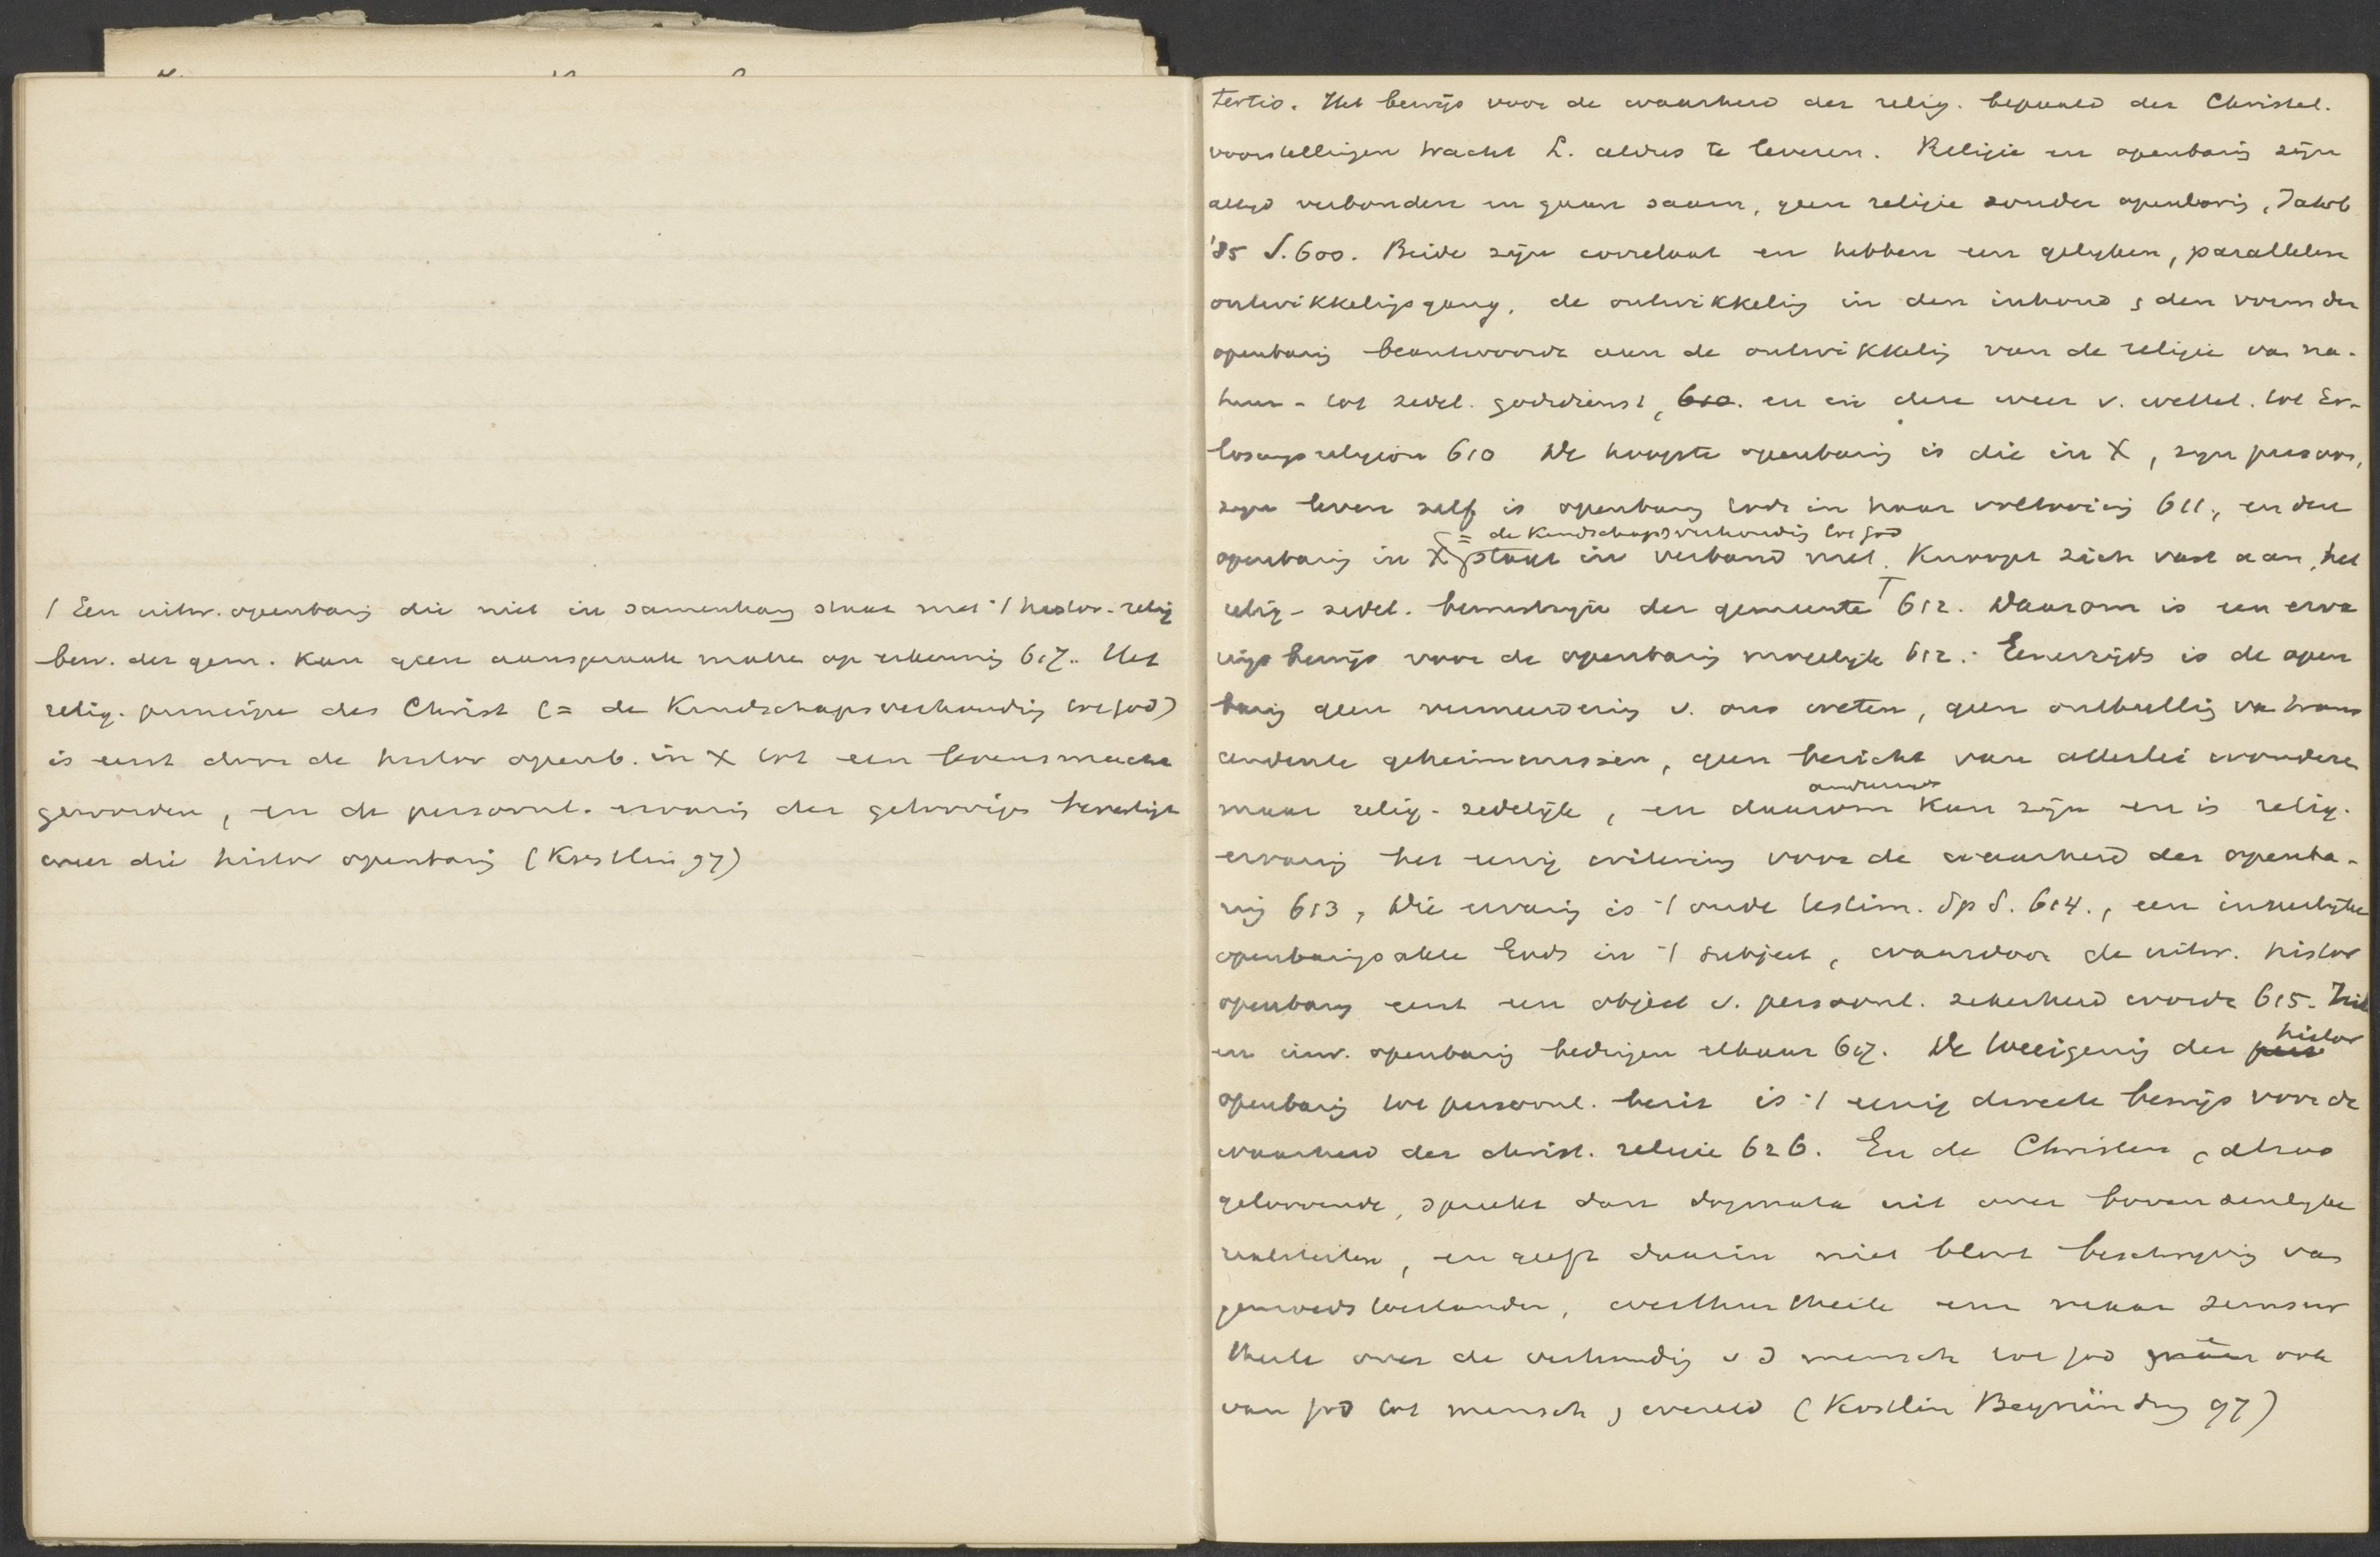 / Een uitw. openbaring die niet in samenhang staat met 't histor.-relig
bew. der gem. kan geen aanspraak maken op erkenning 617. Het
relig. principe des Christ (= de Kindschapsverhouding tot God)
is eerst door de histor openb. in X tot een levensmacht
geworden, en de persoonl. ervaring der geloovigen bevestigt
weer die histor openbaring (Köstlin 97)
tertio. Het bewijs voor de waarheid der relig. bepaald der Christel.
voorstellingen tracht L. aldus te leveren. Religie en openbaring zijn
altijd verbonden en gaan saam, geen religie zonder openbaring, Jahrb
'85 S. 600. Beide zijn correlaat en hebben een gelijken, parallelen
ontwikkelingsgang, de ontwikkeling in den inhoud , den vorm der
openbaring beantwoordt aan de ontwikkeling van de religie van na-
tuur - tot zedel. godsdienst, 610. en in deze weer v. wettel. tot Er-
lösungsreligion 610 De hoogste openbaring is die in X, zijn persoon,
zijn leven zelf is openbaring Gods in haar voltooiing 611, en deze
= de Kindschapsverhouding tot God
openbaring in X staat in verband met. Knoopt zich vast aan het
relig-zedel. bewustzijn der gemeente 612. Daarom is een erva
rings bewijs voor de openbaring mogelijk 612. Eenerzijds is de open
baring geen vermeerdering v. ons weten, geen onthulling van trans
cendente geheimenissen, geen bericht van allerlei wonderen
anderzijds
maar relig-zedelijk, en daarom kan zijn en is relig.
ervaring het eenig criterium voor de waarheid der openba-
ring 613, Die ervaring is 't oude testim. Sp S. 614., een innerlijke
openbaringsakte Gods in 't subject, waardoor de uitw. histor
openbaring eerst een object v. persoonl. zekerheid wordt 615. Uitw
en inw. openbaring bedingen elkaar 617. De toeeigening der pers histor
openbaring tot persoonl. bezit is 't eenig directe bewijs voor de
waarheid der christ. religie 626. En de Christen, alzoo
geloovende, spreekt dan dogmata uit over bovenzinlijke
realiteiten, en geeft daarin niet bloot beschrijving van
gemoedstoestanden, werthurtheile en maar seinsur
theile over de verhouding v d mensch tot God en ook
van God tot mensch , wereld (Köstlin Begründung 97)